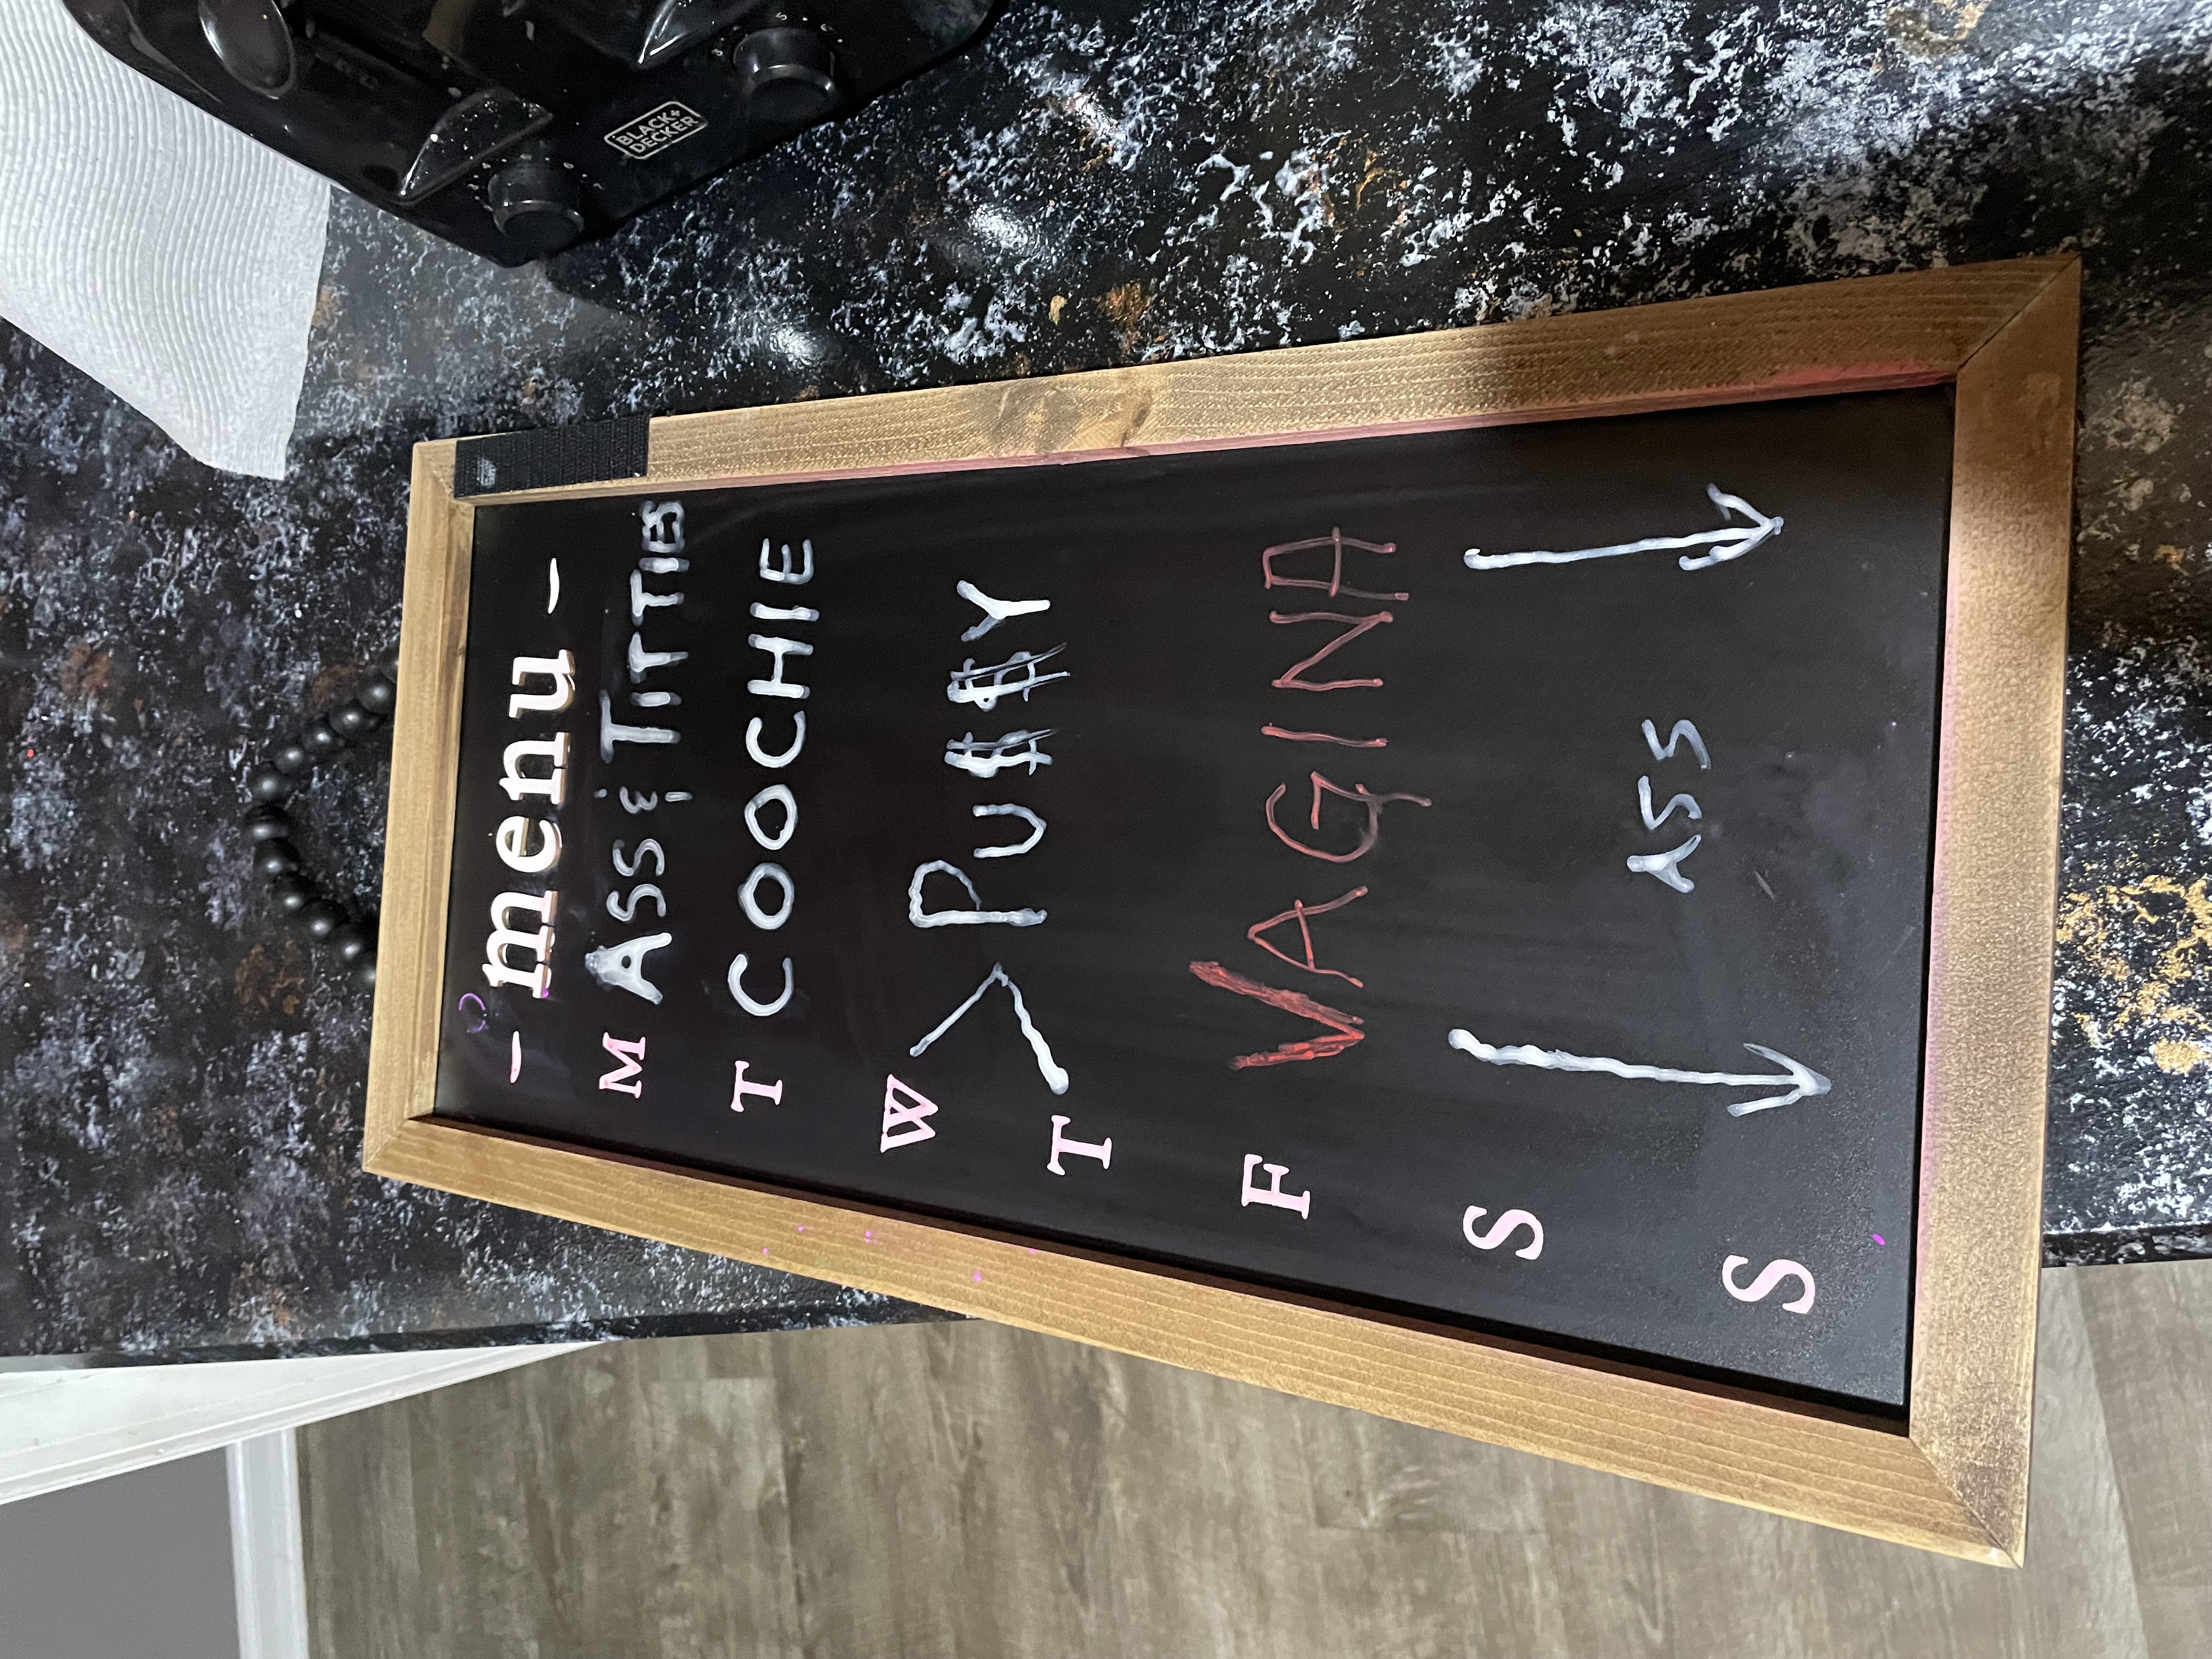 - menu -
M ASS & TITTIES
T COOCHIE
W
> PU$$Y
T
F VAGINA
S
ASS
S
BLACK+
DECKER